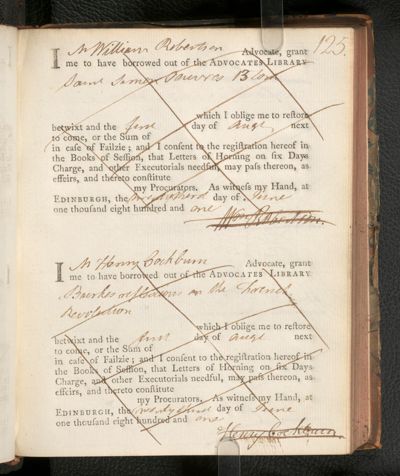 125.
I Mr William Robertson Advocate, grant
me to have borrowed out of the ADVOCATES LIBRARY
Saint Simon Oeuvres 13 vol
which I oblige me to restore
betwixt and the first day of Augt next
to come, or the Sum of
in case of Failzie; and I consent to the registration hereof in
the Books of Session, that Letters of Horning on six Days
Charge, and other Executorials needful, may pass thereon, as
effeirs, and thereto constitute
my Procurators. As witness my Hand, at
EDINBURGH, the day of June
one thousand eight hundred and one
Wm Robertson.
I Mr Henry Cockburn Advocate, grant
me to have borrowed out of the ADVOCATES LIBRARY
Burkes on the French
Revolution
which I oblige me to restore
betwixt and the first day of Augt next
to come, or the Sum of
in case of Failzie; and I consent to the registration hereof in
the Books of Session, that Letters of Horning on six Days
Charge, and other Executorials needful, may pass thereon, as
effeirs, and thereto constitute
my Procurators. As witness my Hand, at
EDINBURGH, the day of June
one thousand eight hundred and one
Henry Cockburn